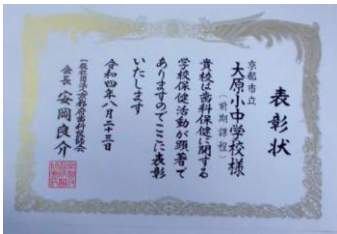 表彰状
京都市立
大原小中学校様
（前期課程）
貴校は歯科保健に関する
学校保健活動が顕著で
ありますのでここに表彰
いたします
令和四年八月二十三日
一般社団法人京都府歯科医師会
会長 安岡良介